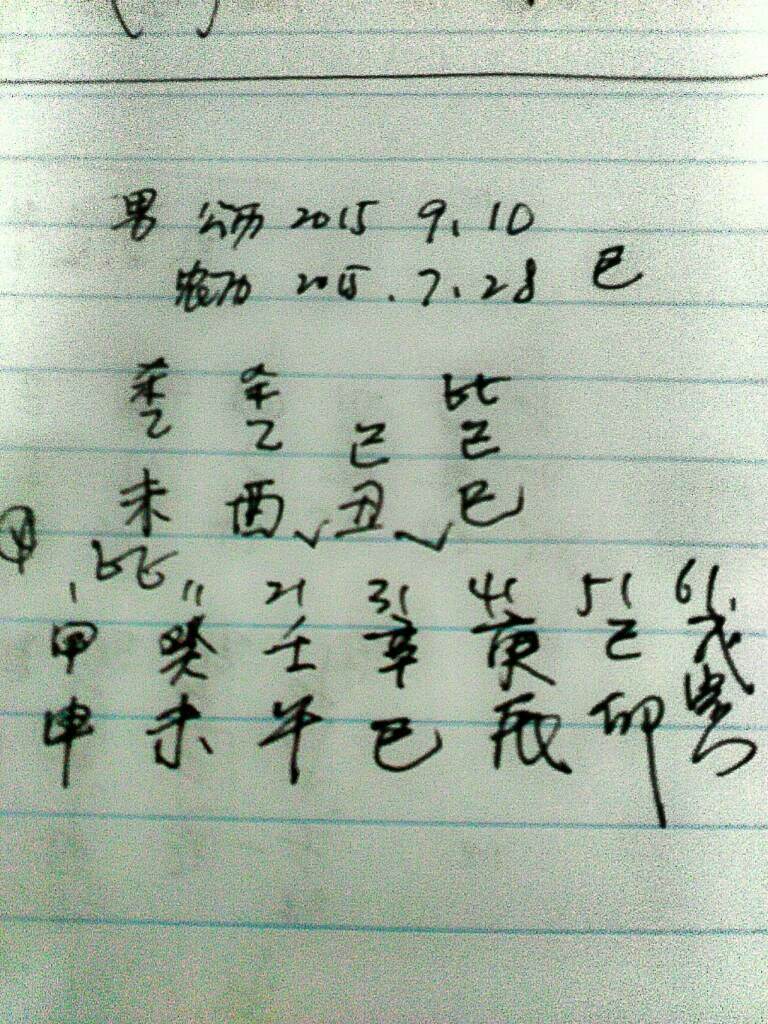 男 公历 2015 9.10
农历 2015.7.28 巳
杀 杀 比
乙 乙 己 己
未 酉 丑 巳
比
1 11 21 31 41 51 61
甲 癸 壬 辛 庚 己 戊
申 未 午 巳 辰 卯